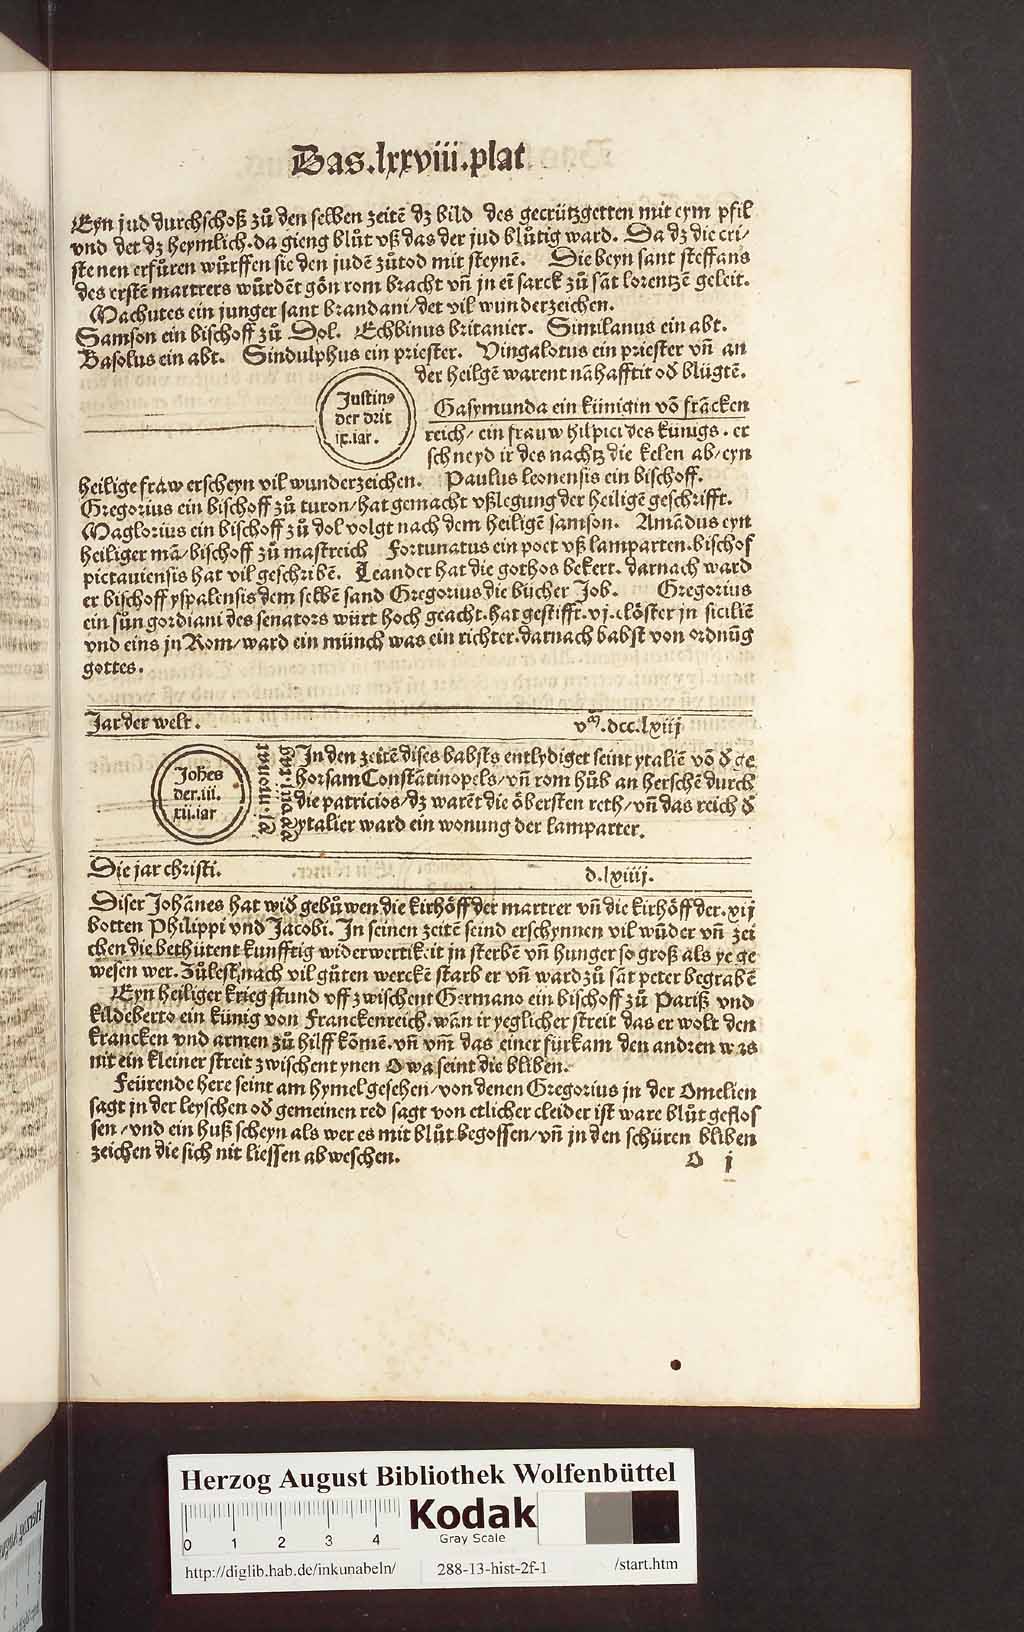 Das .lxxviii. plat
Eyn jud durchschoß zů den selben zeitē dz bild des gecrützgetten mit eym pfil
vnd det dz heymlich. da gieng blůt vß das der jud blůtig ward. Da dz die cri/
stenen erfůren wůrffen sie den judē zůtod mit steynē. Die beyn sant steffans
des erstē martrers wůrdēt gōn rom bracht vñ jn eī sarck zů sāt lorentzē geleit.
Machutes ein junger sant brandani/det vil wunderzeichen.
Samson ein bischoff zů Dol. Echbinus britanier. Similanus ein abt.
Basolus ein abt. Sindulphus ein priester. Vingalotus ein priester vñ an
der heilgē warent nāhafftit od blügtē.
Justinꝯ
der drit
ix.iar.
Gasymunda ein künigin vō frācken
reich/ ein frauw hilpici des künigs. er
schneyd ir des nachtz die kelen ab/eyn
heilige fraw erscheyn vil wunderzeichen. Paulus leonensis ein bischoff.
Gregorius ein bischoff zů turon/hat gemacht vßlegung der heiligē geschrifft.
Maglorius ein bischoff zů dol volgt nach dem heiligē samson. Amādus eyn
heiliger mā/bischoff zů mastreich Fortunatus ein poet vß lamparten.bischof
pictauiensis hat vil geschribē. Leander hat die gothos bekert. darnach ward
er bischoff yspalensis dem selbē sand Gregorius die bücher Job. Gregorius
ein sůn gordiani des senators würt hoch geacht.hat gestifft.vj.clöster jn siciliē
vnd eins jn Rom/ward ein münch was ein richter.darnach babst von ordnūg
gottes.
Jar der welt. vͫ.dcc.lxiij
Johēs
der.iii.
xii.iar
In den zeitē dises babsts entlydiget seint ytaliē vō d ge
horsam Constātinopels/vñ rom hůb an herschē durch
die patricios/dz warēt die öbersten reth/vñ das reich d
ytalier ward ein wonung der lamparter.
Die jar christi. d.lxiiij.
Diser Johānes hat wid gebůwen die kirhöff der martrer vñ die kirhöff der.xij
botten Philippi vnd Jacobi. Jn seinen zeitē seind erschynnen vil wūder vñ zei
chen die bethütent kunfftig widerwertikeit jn sterbē vñ hunger so groß als ye ge
wesen wer. Zůlest/nach vil gůten werckē starb er vñ ward zů sāt peter begrabē
Eyn heiliger krieg stund vff zwischent Germano ein bischoff zů Pariß vnd
kildeberto ein künig von Franckenreich.wān ir yeglicher streit das er wolt den
krancken vnd armen zů hilff kōmē.vñ vm̄ das einer fürkam den andren was
nit ein kleiner streit zwischent ynen O wa seint die bliben.
Feürende here seint am hymel gesehen/von denen Gregorius jn der Omelien
sagt jn der leyschen od gemeinen red sagt von etlicher cleider ist ware blůt geflos
sen/vnd ein huß scheyn als wer es mit blůt begossen/vñ jn den schüren bliben
zeichen die sich nit liessen abweschen.
O j
Herzog August Bibliothek Wolfenbüttel
0 1 2 3 4
Kodak
Gray Scale
http://diglib.hab.de/inkunabeln/ 288-13-hist-2f-1 /start.htm